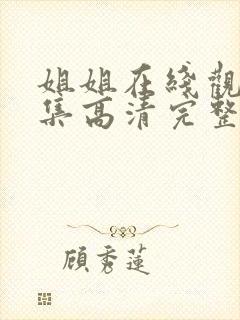 姐姐在綫觀
集高清完整
顧秀蓮